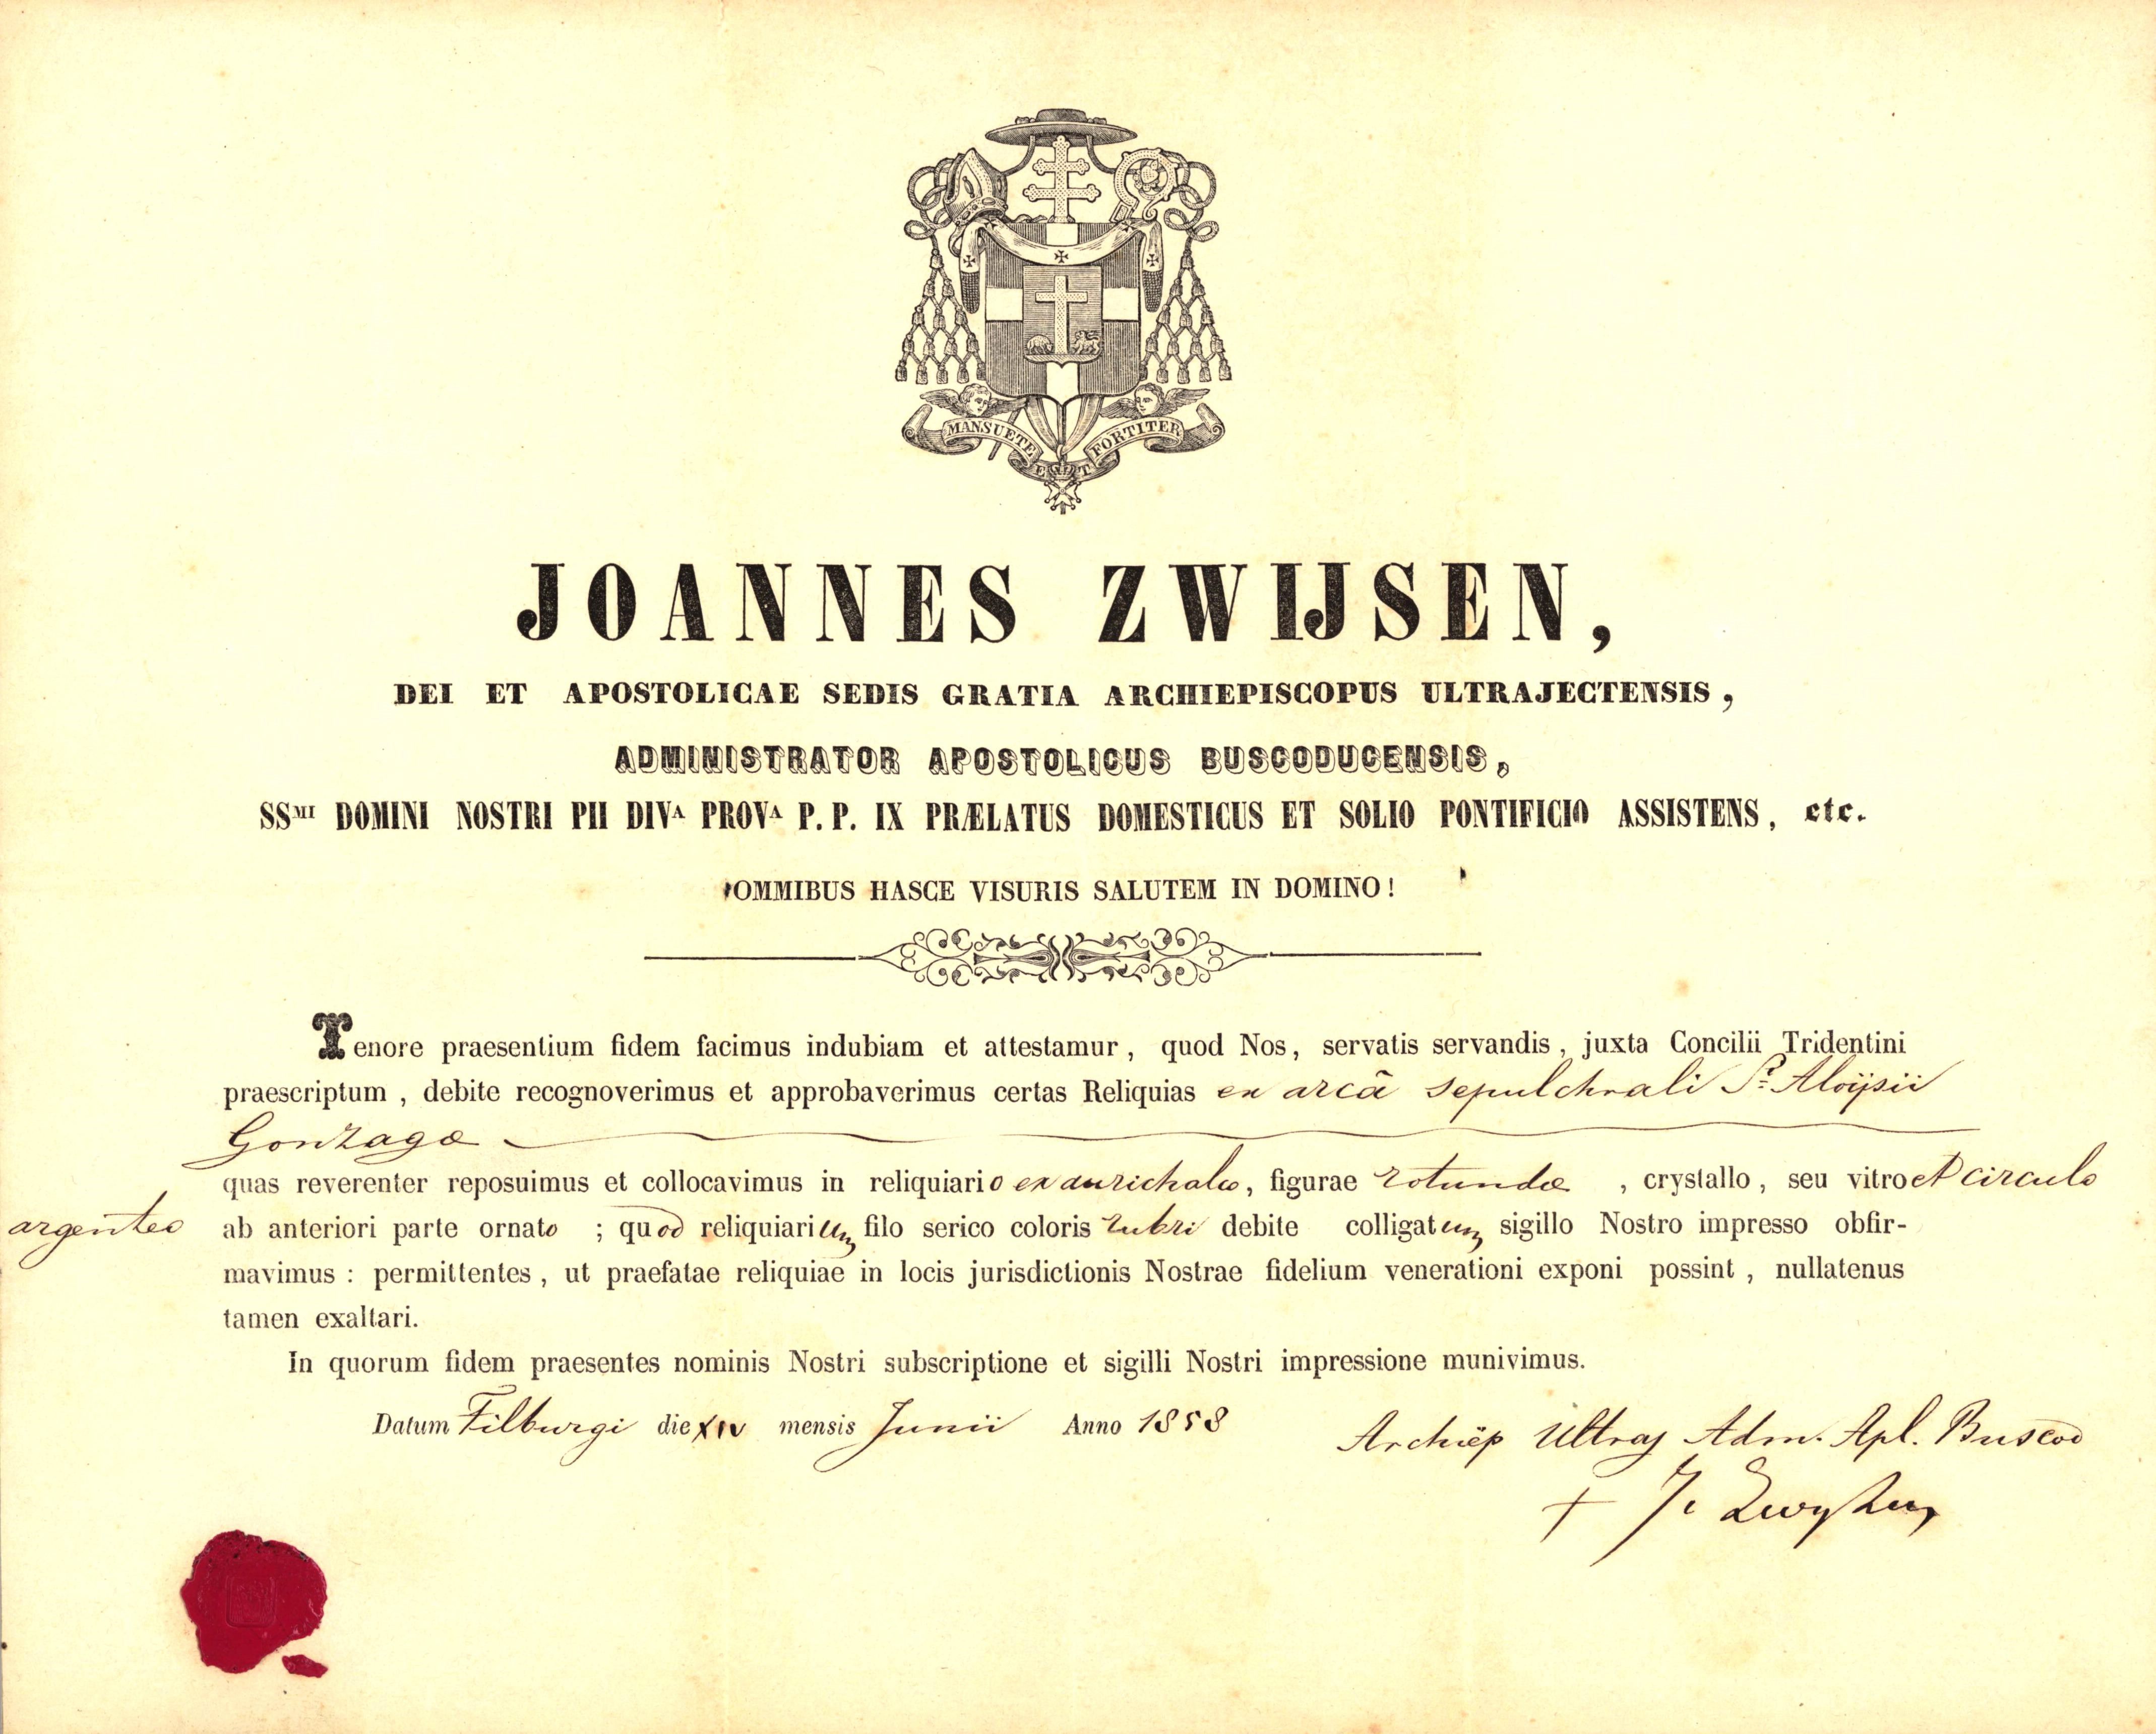 MANSUETE ET FORTITER
JOANNES ZWIJSEN,
DEI ET APOSTOLICAE SEDIS GRATIA ARCHIEPISCOPUS ULTRAJECTENSIS,
ADMINISTRATOR APOSTOLICUS BUSCODUCENSIS,
SSMI DOMINI NOSTRI PII DIVA PROVA P. P. IX PRÆLATUS DOMESTICUS ET SOLIO PONTIFICIO ASSISTENS, etc.
OMMIBUS HASCE VISURIS SALUTEM IN DOMINO!
Tenore praesentium fidem facimus indubiam et attestamur, quod Nos, servatis servandis, juxta Concilii Tridentini
praescriptum, debite recognoverimus et approbaverimus certas Reliquias ex arcâ sepulchrali Si Aloijsii
Gonzagae
quas reverenter reposuimus et collocavimus in reliquiario ex aurichalco, figurae rotundae, crystallo, seu vitro et circulo
argenteo ab anteriori parte ornato; quod reliquiarium filo serico coloris rubri debite colligatum sigillo Nostro impresso obfir-
mavimus: permittentes, ut praefatae reliquiae in locis jurisdictionis Nostrae fidelium venerationi exponi possint, nullatenus
tamen exaltari.
In quorum fidem praesentes nominis Nostri subscriptione et sigilli Nostri impressione munivimus.
Datum Tilburgi die XIV mensis Junii Anno 1858
Archiëp Ultraj Adm. Apl. Buscod
† J. Zwysen